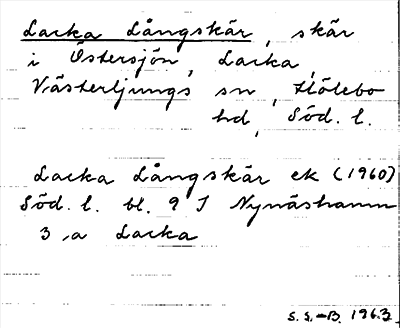 Lacka Långskär, skär
i Östersjön, Lacka,
Västerljungs sn, Hölebo
hd, Söd. l.
Lacka Långskär ek (1960)
Söd. l. bl. 9 I Nynäshamn
3 ,a Lacka
S. S.-B. 1963